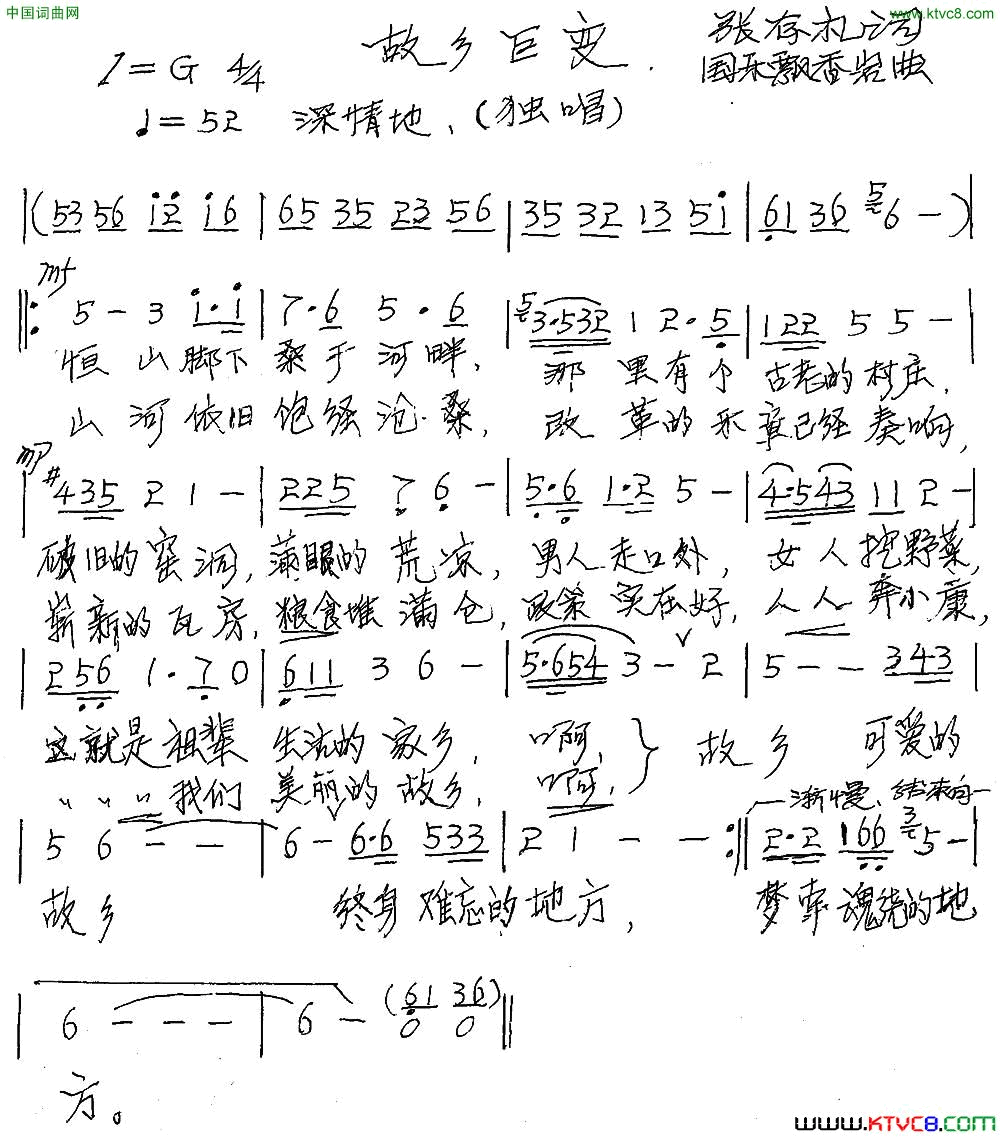 中国词曲网
www.ktvc8.com
故乡巨变
张存礼词
国乐飘香岩曲
1=G 4/4
♩=52 深情地、(独唱)
|(53 56 i2 i6 | 65 35 23 56 | 35 32 13 5i | 61 36 5 6 -)|
mf
‖: 5 - 3 i·i | 7·6 5·6 | 5 3·532 1 2·5 | 122 5 5 - |
恒山脚下桑于河畔, 那里有个古老的村庄,
山河依旧饱经沧桑, 改革的乐章已经奏响,
mp
| #435 2 1 - | 225 7 6 - | 5·6 1·2 5 - | 4·543 11 2 - |
破旧的窑洞, 满眼的荒凉, 男人走口外, 女人挖野菜,
崭新的瓦房, 粮食堆满仓, 政策实在好, 人人奔小康,
| 256 1·7 0 | 611 3 6 - | 5·654 3 - 2 | 5 - - 343 |
这就是祖辈 生活的家乡, 啊, } 故乡 可爱的
" " " 我们 美丽的故乡, 啊,
渐慢、结束句
| 5 6 - - | 6 - 6·6 533 | 2 1 - - :‖ 2·2 166 3 5 - |
故乡 终身难忘的地方, 梦牵魂绕的地
| 6 - - - | 6 - (61 36) ‖
0 0
方。
www.KTVC8.com